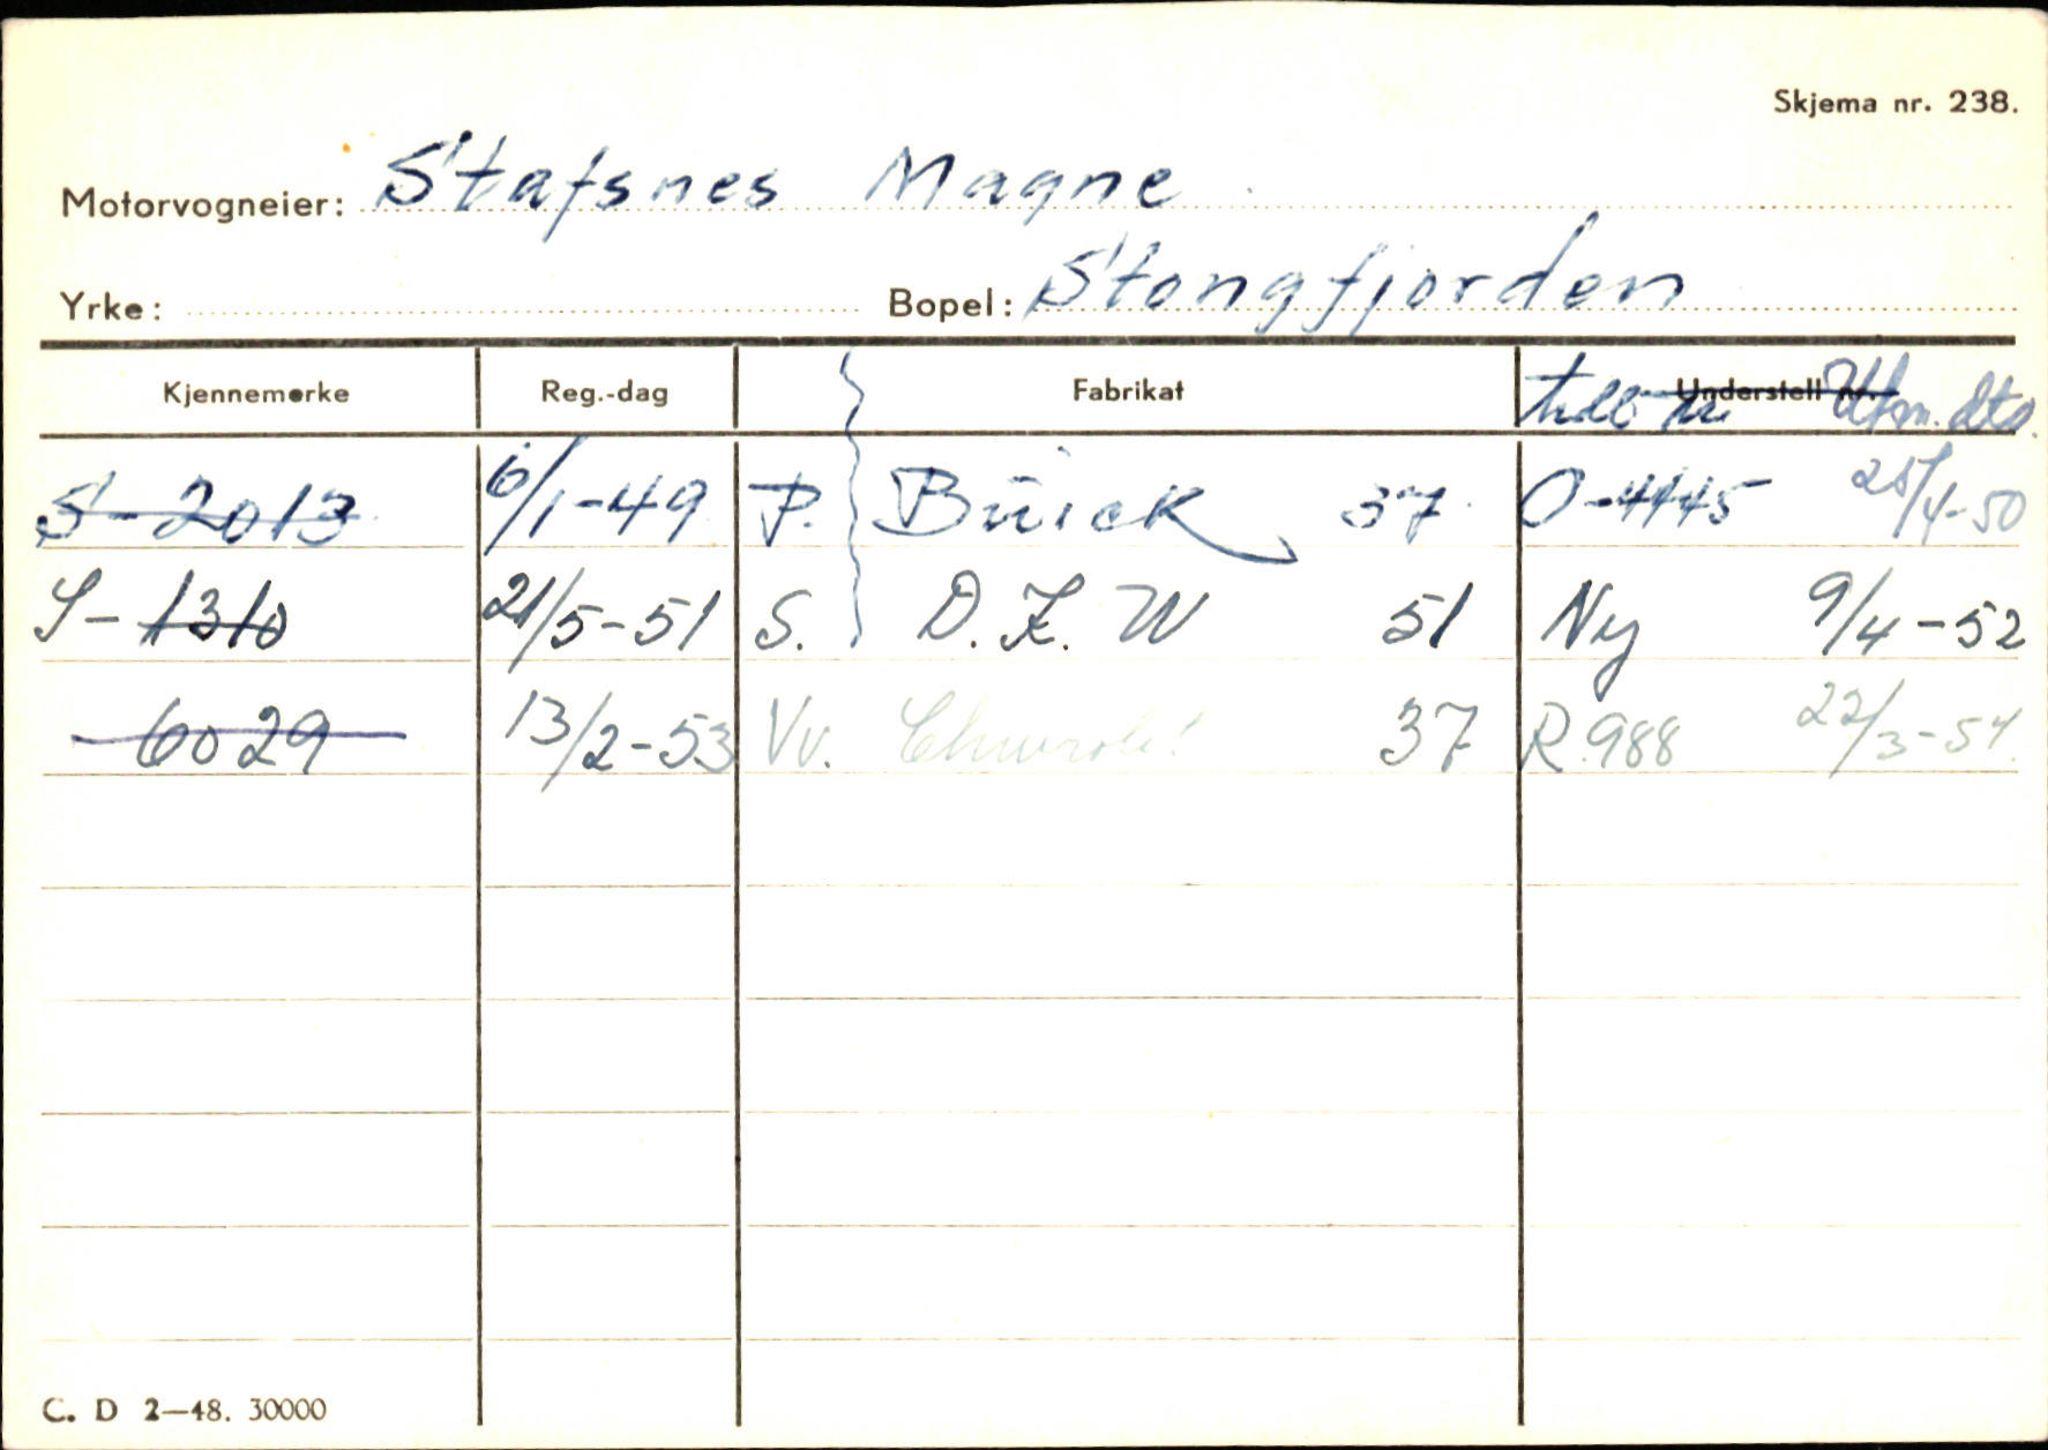 Skjema nr. 238.
Motorvogneier: Stafsnes Magne
Yrke: Bopel: Stongfjorden
Kjennemerke Reg.-dag Fabrikat Understell nr. Utm. dto.
S-2013 6/1-49 P. Buick 37 O-4145 25/4-50
S-1310 21/5-51 S. D.K.W 51 Ny 9/4-52
6029 13/2-53 Vv. Chevrolet 37 R.988 22/3-54.
C. D 2—48. 30000